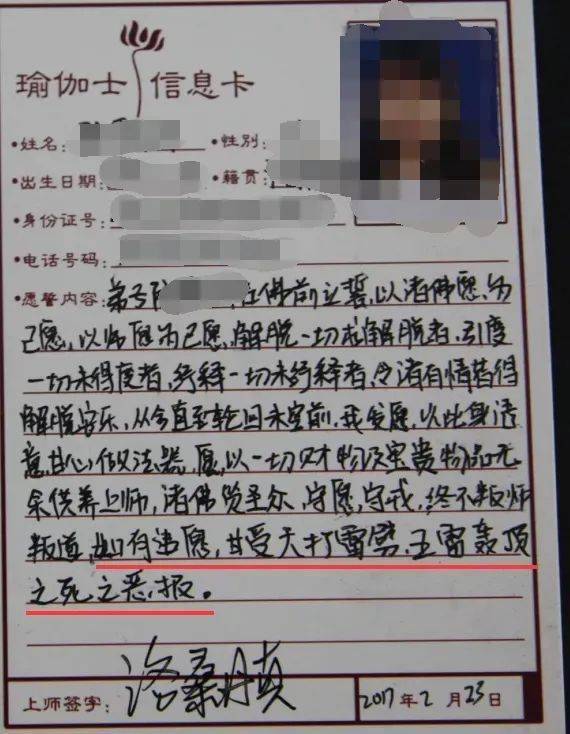 瑜伽士 信息卡
·姓名: ·性别:
·出生日期: ·籍贯:
·身份证号:
·电话号码:
·愿誓内容: 弟子 在佛前立誓,以诸佛愿为
己愿,以师愿为己愿,解脱一切未解脱者,引度
一切未得度者,一切未者,令诸有情皆得
解脱安乐,从今直至轮回未空前,我发愿,以此身语
意,甘心做法器,愿以一切财物及宝贵物品无
余供养上师,诸佛贤圣众,守愿,守戒,终不叛师
叛道,如有违愿,甘受天打雷劈,五雷轰顶
之死之恶报。
上师签字: 洛桑丹真 2017年2月23日